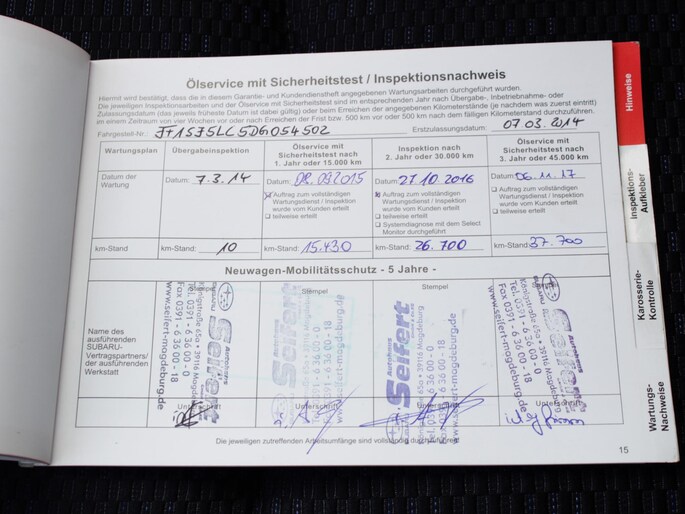 Ölservice mit Sicherheitstest / Inspektionsnachweis
Hiermit wird bestätigt, dass die in diesem Garantie- und Kundendienstheft angegebenen Wartungsarbeiten durchgeführt wurden.
Die jeweiligen Inspektionsarbeiten und der Ölservice mit Sicherheitstest sind im entsprechenden Jahr nach Übergabe-, Inbetriebnahme- oder
Zulassungsdatum (das jeweils früheste Datum ist dabei gültig) oder beim Erreichen der angegebenen Kilometerstände (je nachdem was zuerst eintritt)
in einem Zeitraum von vier Wochen vor oder nach Erreichen der Frist bzw. 500 km vor oder 500 km nach dem fälligen Kilometerstand durchzuführen.
Fahrgestell-Nr.: JF1SJ5LC5DG054502 Erstzulassungsdatum: 07 03. 2014
Wartungsplan Übergabeinspektion Ölservice mit Sicherheitstest nach 1. Jahr oder 15.000 km Inspektion nach 2. Jahr oder 30.000 km Ölservice mit Sicherheitstest nach 3. Jahr oder 45.000 km
Datum der Wartung Datum: 7.3.14 Datum: 08.09.2015 Datum: 27.10.2016 Datum: 06.11.17
Auftrag zum vollständigen Wartungsdienst / Inspektion wurde vom Kunden erteilt
teilweise erteilt
Auftrag zum vollständigen Wartungsdienst / Inspektion wurde vom Kunden erteilt
teilweise erteilt
Systemdiagnose mit dem Select Monitor durchgeführt
Auftrag zum vollständigen Wartungsdienst / Inspektion wurde vom Kunden erteilt
teilweise erteilt
km-Stand: km-Stand: 10 km-Stand: 15.430 km-Stand: 26.700 km-Stand: 37.700
Neuwagen-Mobilitätsschutz - 5 Jahre -
Name des ausführenden SUBARU-Vertragspartners/ der ausführenden Werkstatt
Stempel Stempel Stempel Stempel
SUBARU
Autohaus
Seifert
Königstraße 65a • 39116 Magdeburg
Tel. 0391 - 6 36 00 - 0
Fax 0391 - 6 36 00 - 18
www.seifert-magdeburg.de
Seifert
Autohaus
Seifert
Unterschrift Unterschrift Unterschrift Unterschrift
Die jeweiligen zutreffenden Arbeitsumfänge sind vollständig durchzuführen.
15
Hinweise
Inspektions-
Aufkleber
Karosserie-
Kontrolle
Wartungs-
Nachweise